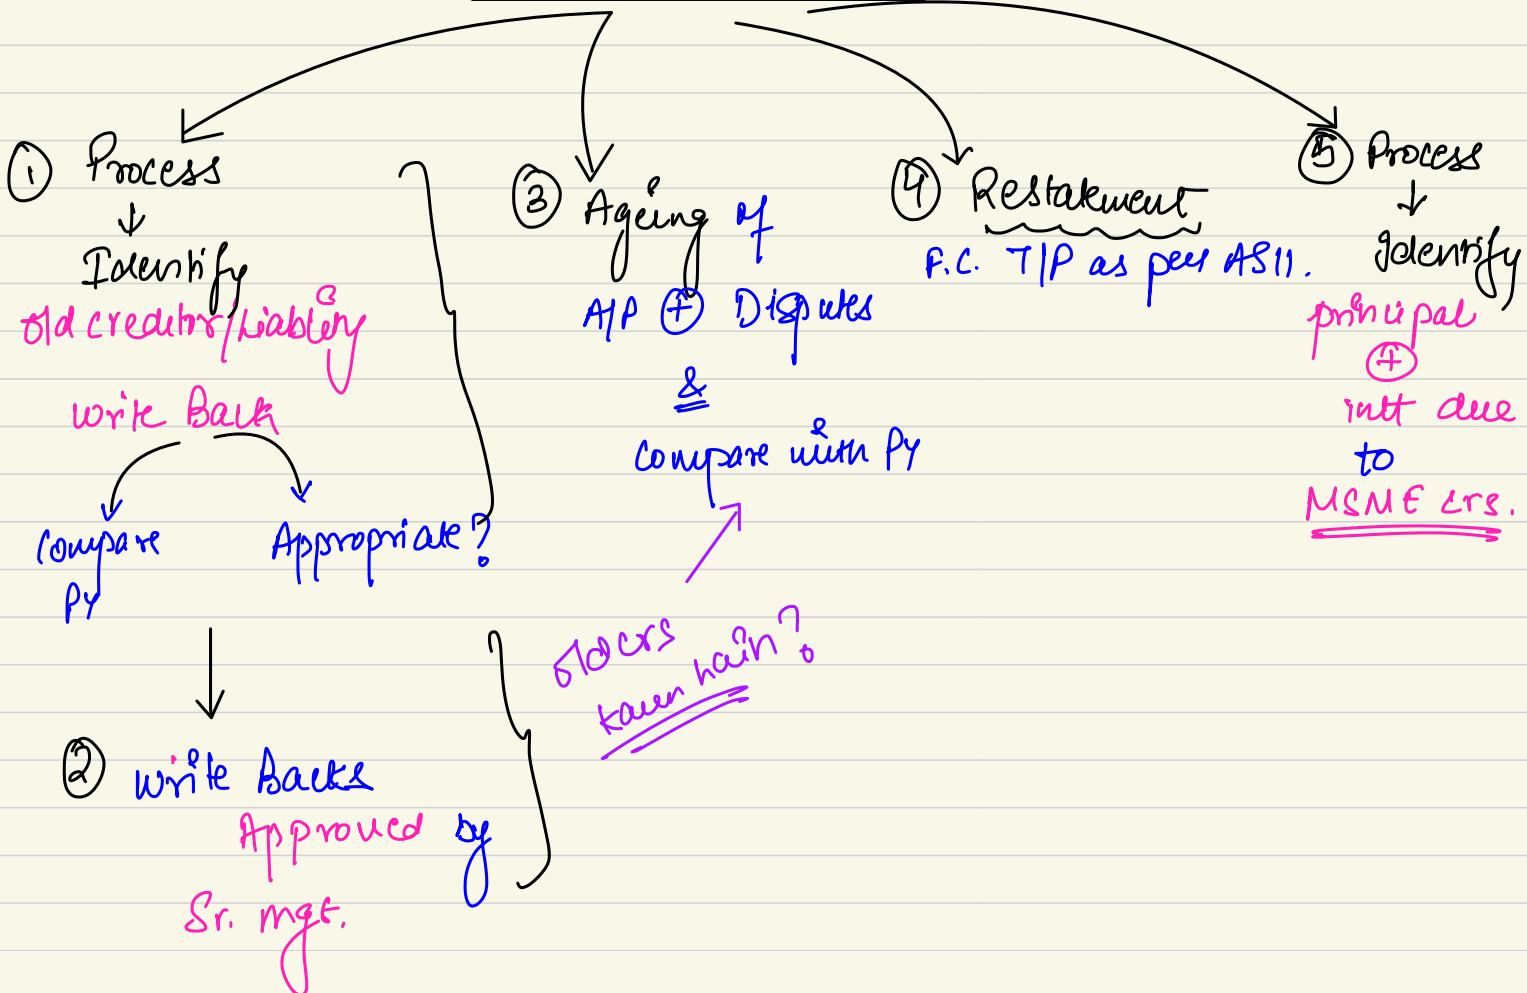 ① Process
↓
Identify
old creditor/Liability
Write Back
Compare
PY
Appropriate?
② Write Backs
Approved by
Sr. mgt.
③ Ageing of
A/P ⊕ Disputes
&
Compare with PY
old crs
kaun hain?
④ Restatement
F.C. T/P as per AS11.
⑤ Process
↓
Identify
principal
⊕
intt due
to
MSME crs.